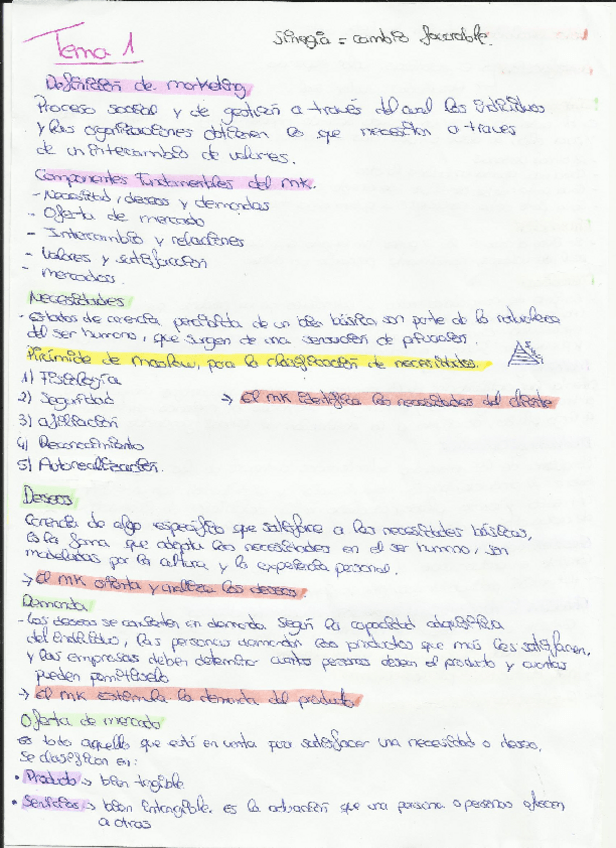 Tema 1
Sinegia = cambio favorable.
Definición de marketing
Proceso social y de gestión a través del cual los individuos
y las organizaciones obtienen lo que necesitan a traves
de un intercambio de valores.
Componentes fundamentales del mk.
- Necesidad, deseos y demandas
- Oferta de mercado
- Intercambio y relaciones
- Valores y satisfacción
- mercados.
Necesidades
- estados de carencia percibida de un bien básico, son parte de la naturaleza
del ser humano, que surgen de una sensación de privación.
Pirámide de Maslow, para la clasificación de necesidades.
1) Fisiología
2) Seguridad
→ El mk identifica las necesidades del cliente
3) afiliación
4) Reconocimiento
5) Autorrealización.
Deseos
Carencia de algo especifico que satisface a las necesidades básicas,
es la forma que adopta las necesidades en el ser humano, son
modeladas por la cultura y la experiencia personal.
→ El mk orienta y los deseos.
Demanda
- Los deseos se convierten en demanda. Según la capacidad adquisitiva
del individuo, las personas demandan los productos que más les satisfacen,
y las empresas deben determinar cuantas personas desean el producto y cuantas
pueden permitirselo
→ El mk estimula la demanda del producto
Oferta de mercado
es todo aquello que está en venta para satisfacer una necesidad o deseo,
se clasifican en:
• Producto → bien tngible
• Servicios → bien intangible. es la actuación que una persona o personas ofrecen
a otras